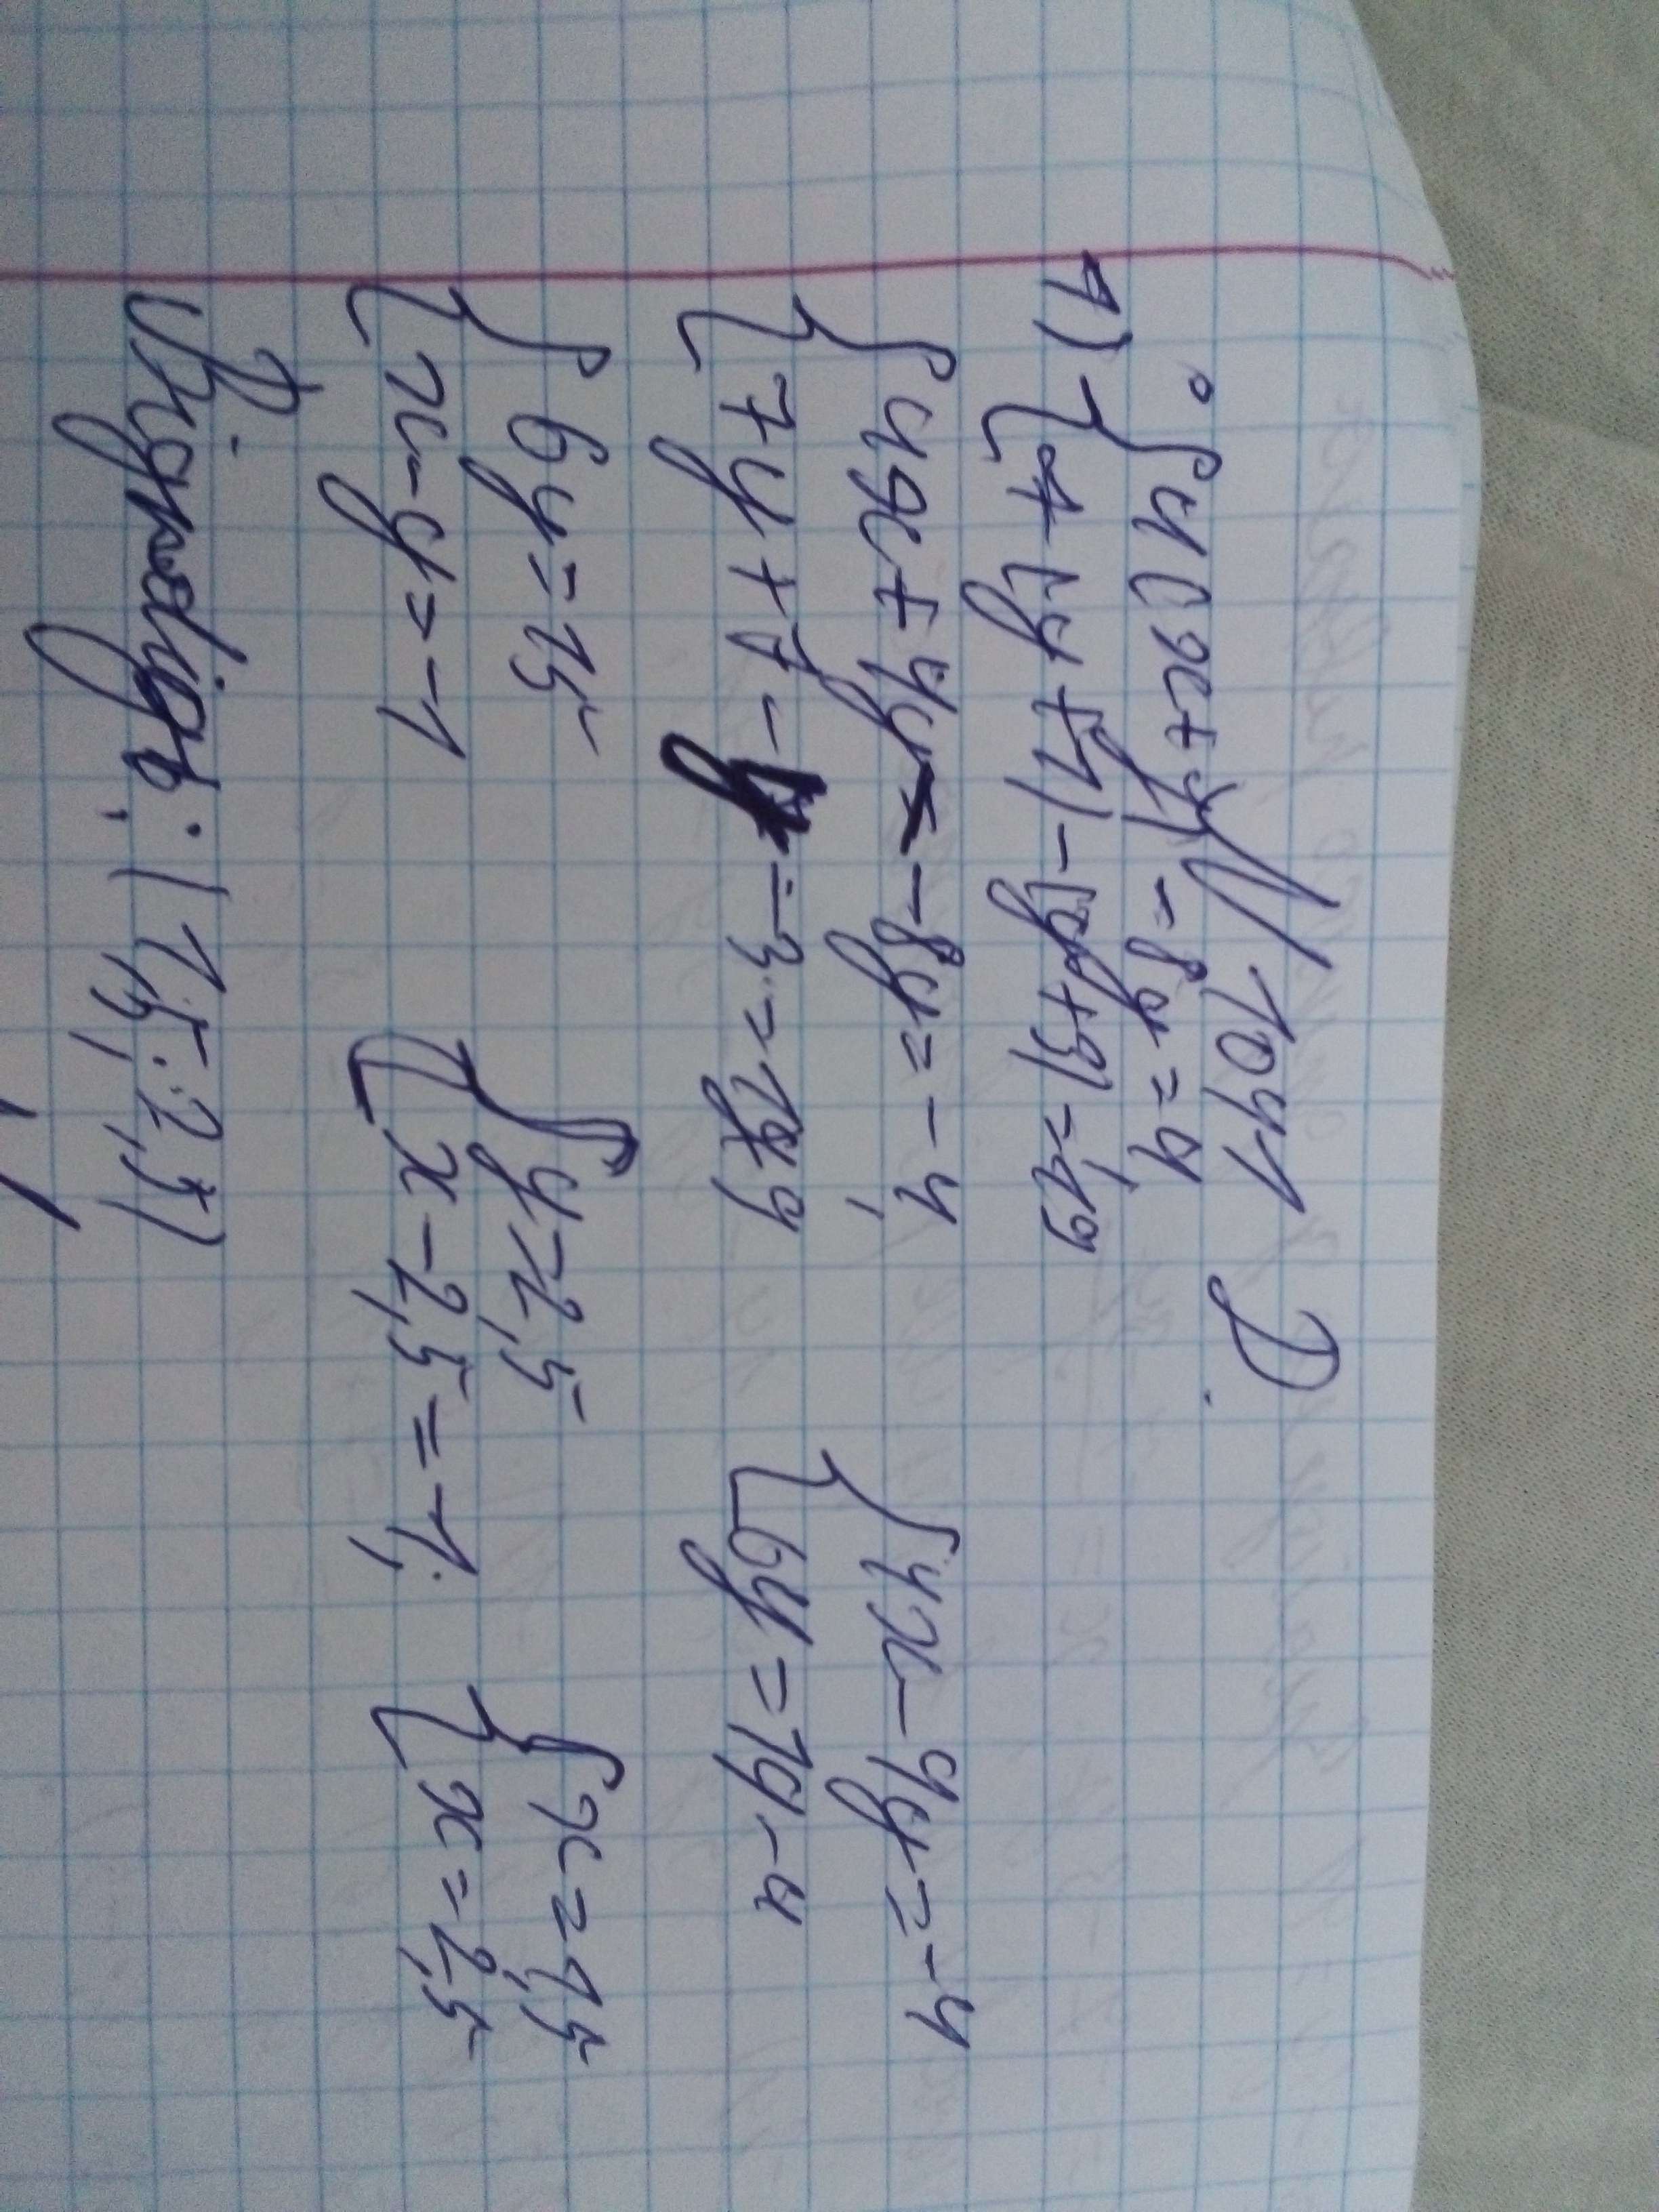 № 1041 D.
1) { 4(x+y) - 8y = 4,
7(y+1) - (y+3) = 19
{ 4x + 4y - 8y = -4,
7y + 7 - y - 3 = 19
{ 4x - 4y = -4
6y = 19 - 4
{ 6y = 15
x - y = -1
{ y = 2,5
x - 2,5 = -1;
{ x = 1,5
x = 2,5
Відповідь: (1,5; 2,5)